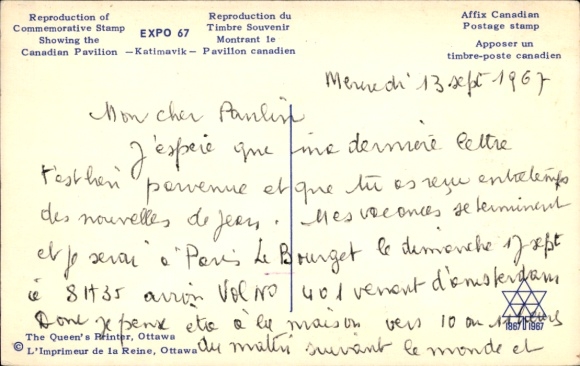 Reproduction of
Commemorative Stamp
Showing the
Canadian Pavilion
EXPO 67
—Katimavik—
Reproduction du
Timbre Souvenir
Montrant le
Pavillon canadien
Affix Canadian
Postage stamp
Apposer un
timbre-poste canadien
Mercredi 13 sept 1967
Mon cher Paulin
J'espère que ma dernière lettre
t'est bien parvenue et que tu as reçu entretemps
des nouvelles de Jean. Mes vacances se terminent
et je serai à Paris Le Bourget le dimanche 17 sept
à 8H35 avion Vol No 401 venant d'Amsterdam
Donc je pense être à la maison vers 10 ou 11 heures
du matin suivant le monde et
1867 1967
The Queen's Printer, Ottawa
© L'Imprimeur de la Reine, Ottawa